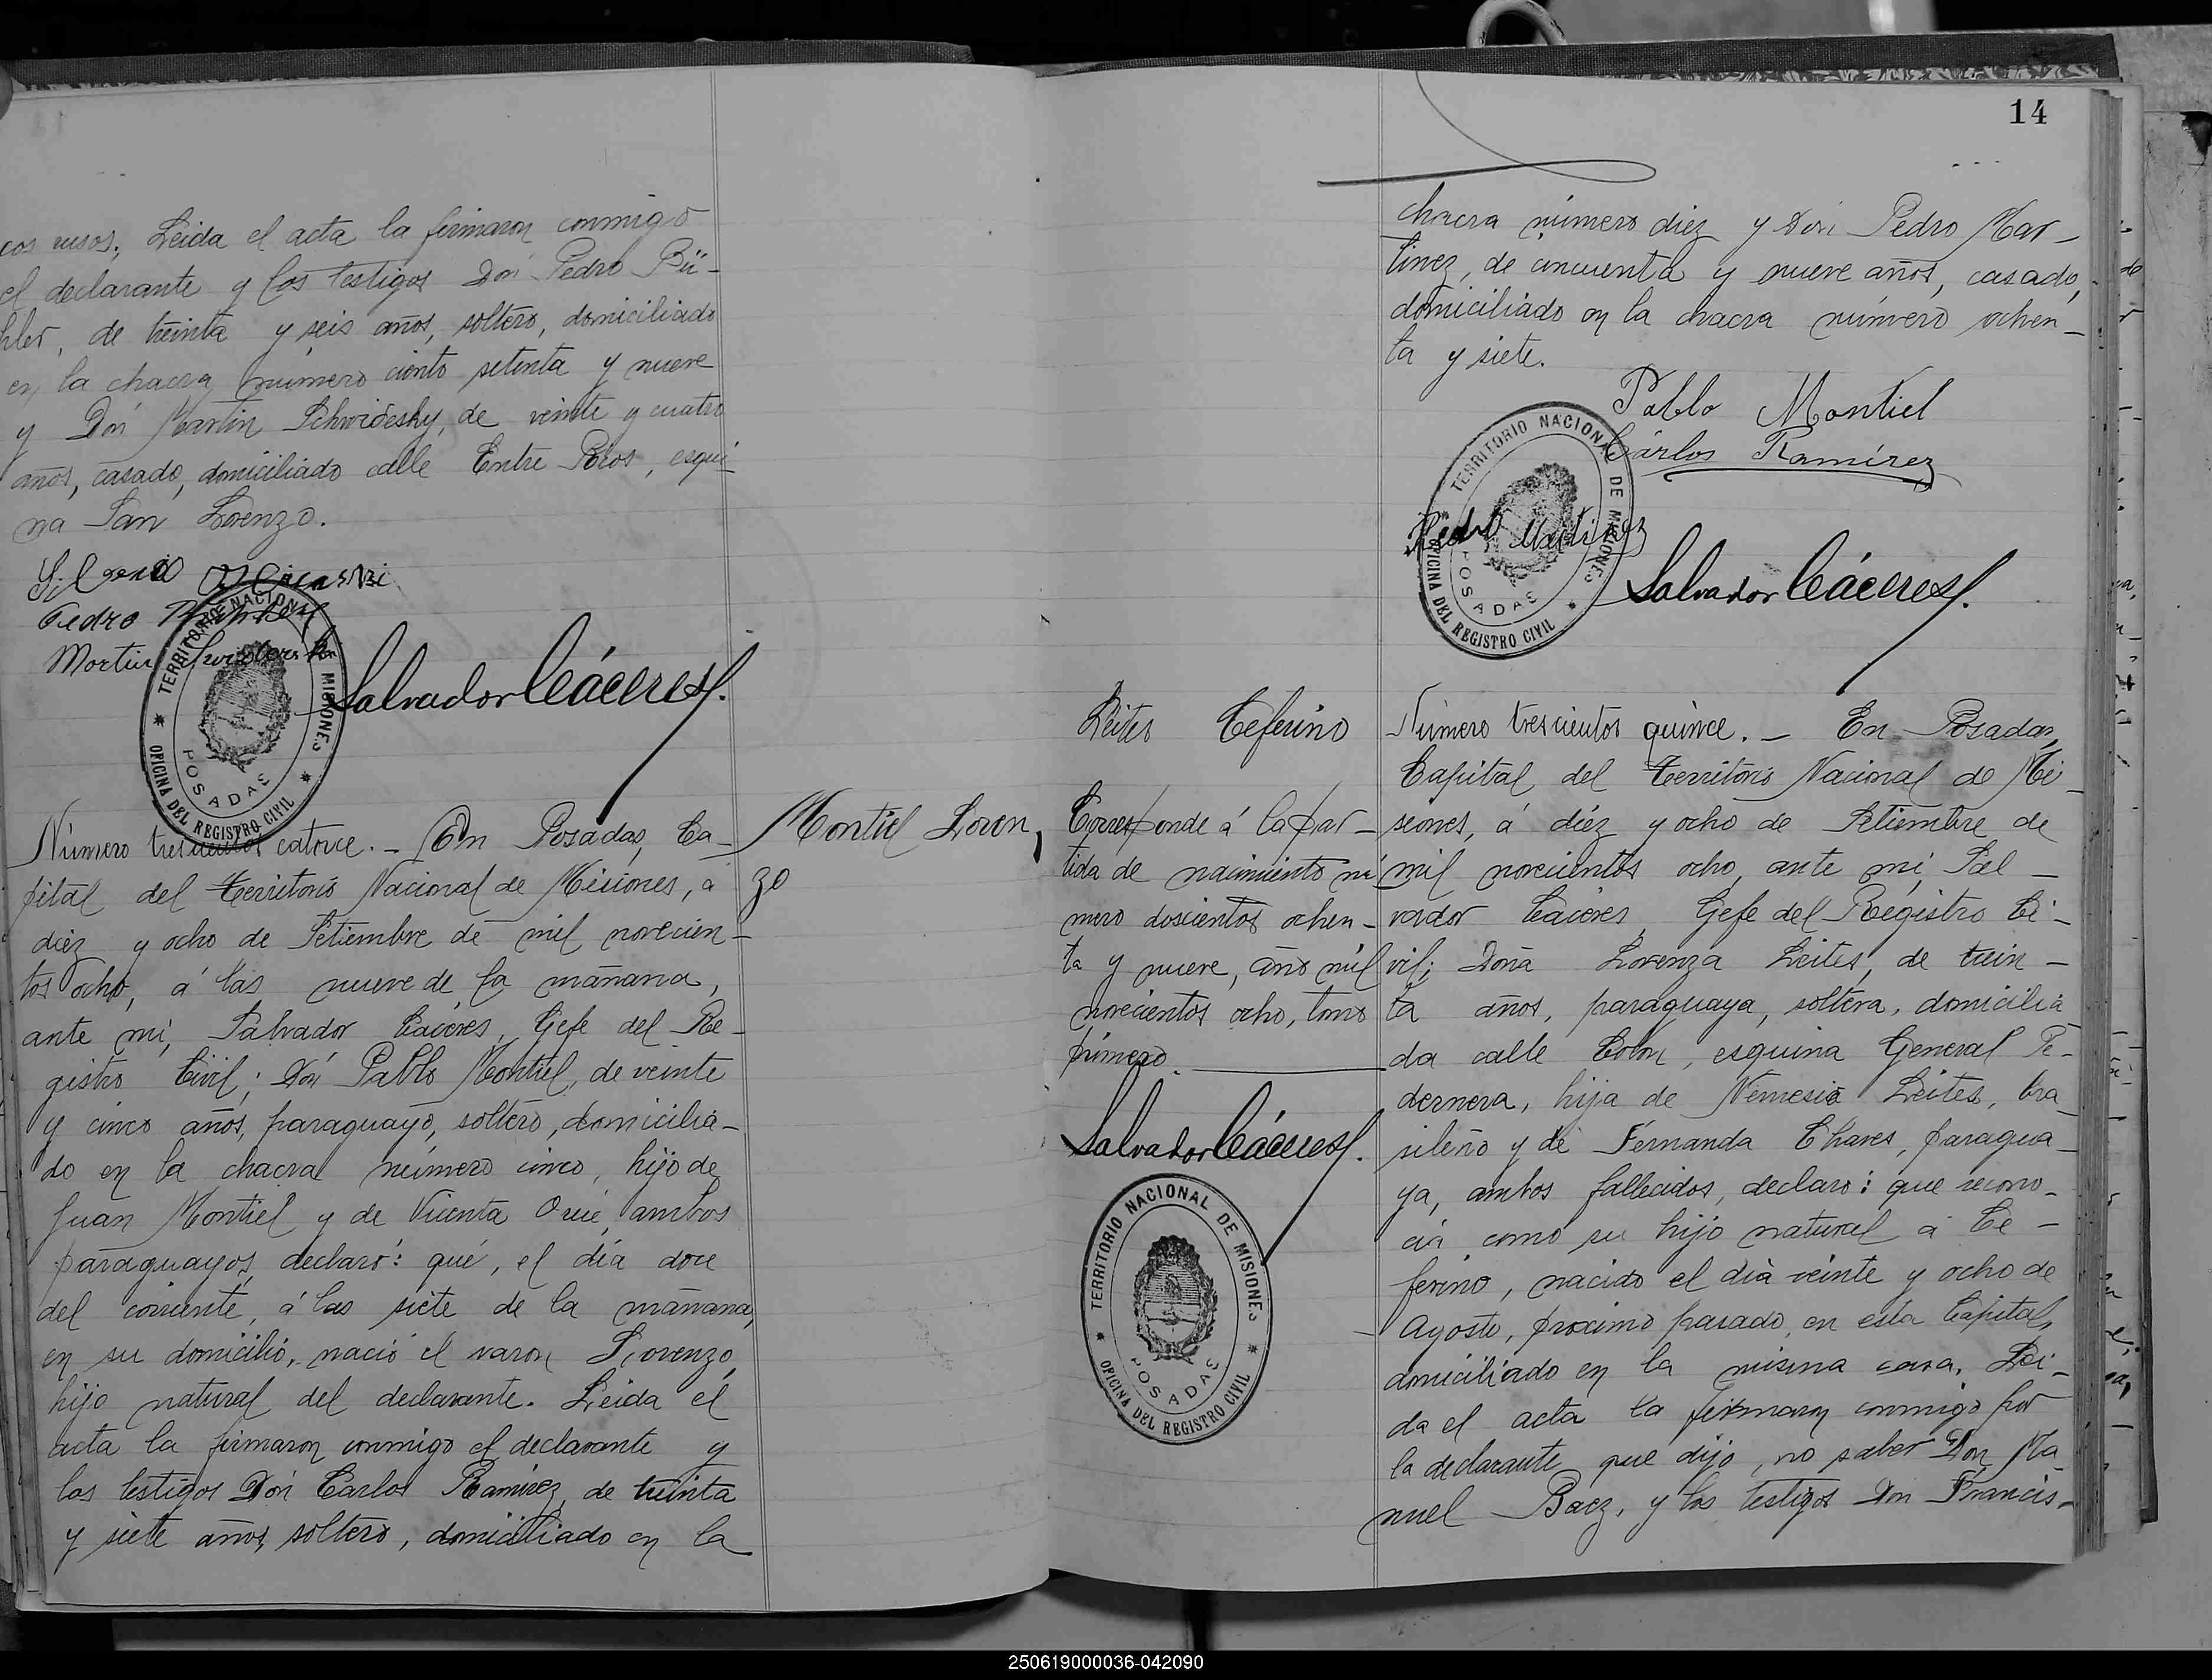 cos rusos; Leida el acta la firmaron conmigo
el declarante y los testigos Don Pedro Bü-
hler, de treinta y seis años, soltero, domiciliado
en la chacra número ciento setenta y nueve
y Don Martin Schwidesky, de veinte y cuatro
años, casado, domiciliado calle Entre Rios, esqui-
na San Lorenzo.
Pedro
Martin
Salvador Cáceres
TERRITORIO NACIONAL DE MISIONES
POSADAS
OFICINA DEL REGISTRO CIVIL
Número trescientos catorce. - En Posadas, Ca-
pital del Territorio Nacional de Misiones, á
diez y ocho de Setiembre de mil novecien-
tos ocho, á las nueve de la mañana,
ante mi, Salvador Cáceres, Gefe del Re-
gistro Civil; Don Pablo Montiel, de veinte
y cinco años, paraguayo, soltero, domicilia-
do en la chacra número cinco, hijo de
Juan Montiel y de Vicenta Orué, ambos
paraguayos, declaró: que, el dia doce
del corriente, á las siete de la mañana,
en su domicilio, nació el varon Lorenzo,
hijo natural del declarante. Leida el
acta la firmaron conmigo el declarante y
los testigos Don Carlos Ramirez, de treinta
y siete años, soltero, domiciliado en la
Montiel Loren,
zo
14
chacra número diez y Don Pedro Mar-
tinez, de cincuenta y nueve años, casado,
domiciliado en la chacra número ochen-
ta y siete.
Pablo Montiel
Cárlos Ramírez
Pedro Martinez
Salvador Cáceres
TERRITORIO NACIONAL DE MISIONES
POSADAS
OFICINA DEL REGISTRO CIVIL
Leites Ceferino
Corresponde á la par-
tida de nacimiento nú
mero doscientos ochen-
ta y nueve, año mil
novecientos ocho, tomo
primero.
Salvador Cáceres
TERRITORIO NACIONAL DE MISIONES
POSADAS
OFICINA DEL REGISTRO CIVIL
Número trescientos quince. - En Posadas,
Capital del Territorio Nacional de Mi-
siones, á diez y ocho de Setiembre de
mil novecientos ocho, ante mi, Sal-
vador Cáceres, Gefe del Registro Ci-
vil; Doña Lorenza Leites, de trein-
ta años, paraguaya, soltera, domicilia
da calle Colon, esquina General Pe-
dernera, hija de Nemesio Leites, bra-
sileño y de Fernanda Chaves, paragua-
ya, ambos fallecidos, declaró: que recono-
cia como su hijo natural á Ce-
ferino, nacido el dia veinte y ocho de
Agosto, próximo pasado, en esta Capital,
domiciliado en la misma casa. Lei-
da el acta la firmaron conmigo por
la declarante, que dijo, no saber Don Ma-
nuel Baez, y los testigos Don Francis-
250619000036-042090